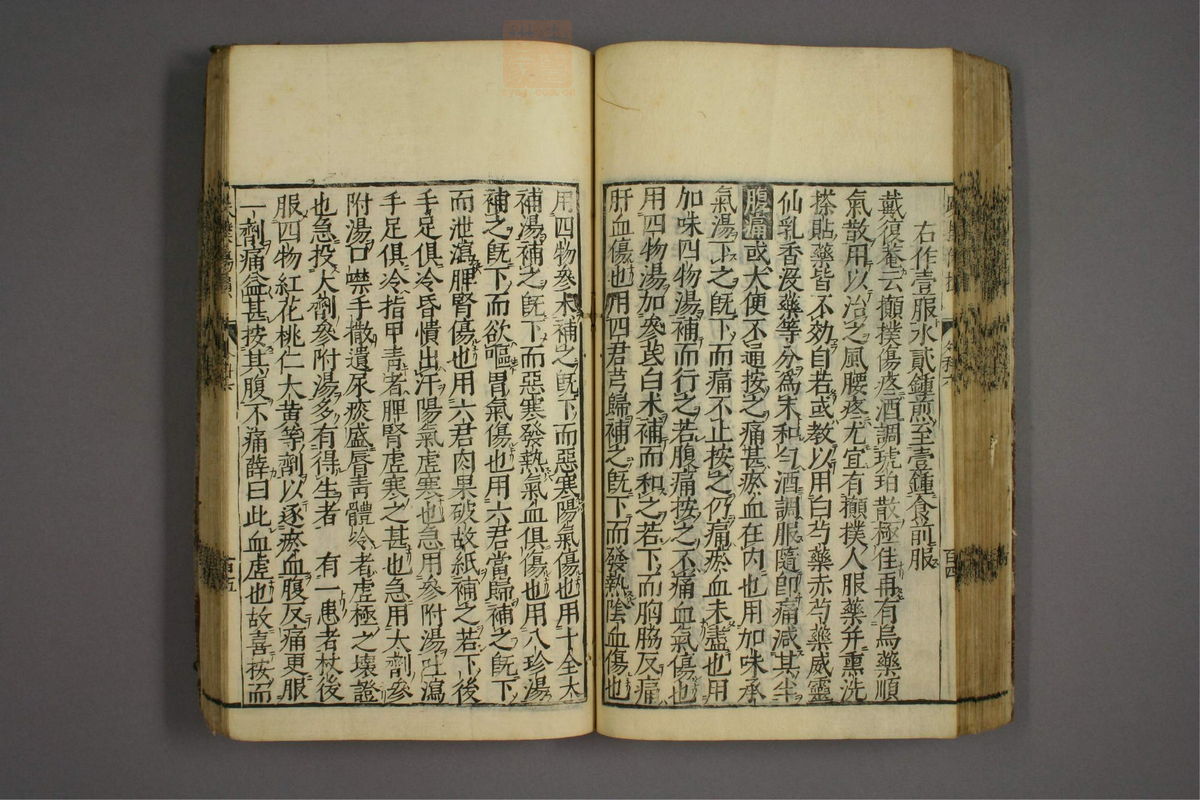 右作壹服水貳鍾煎至壹鍾食前服
戴復菴云攧撲傷疼酒調琥珀散極佳再有烏藥順
氣散用以治之風腰疼尤宜有攧撲人服藥并熏洗
搽貼藥皆不効自若或教以用白芍藥赤芍藥威靈
仙乳香沒藥等分爲末和勻酒調服隨卽痛減其半
腹痛或大便不通按之痛甚瘀血在内也用加味承
氣湯下之旣下而痛不止按之仍痛瘀血未盡也用
加味四物湯補而行之若腹痛按之不痛血氣傷也
用四物湯加參茋白术補而和之若下而胸脇反痛
肝血傷也用四君芎歸補之旣下而發熱陰血傷也
用四物參术補之旣下而惡寒陽氣傷也用十全大
補湯補之旣下而惡寒發熱氣血俱傷也用八珍湯
補之旣下而欲嘔胃氣傷也用六君當歸補之旣下
而泄瀉脾腎傷也用六君肉果破故紙補之若下後
手足俱冷昏憒出汗陽氣虛寒也急用參附湯吐瀉
手足俱冷指甲青者脾腎虛寒之甚也急用大劑參
附湯口噤手撒遺尿痰盛唇青體冷者虛極之壞證
也急投大劑參附湯多有得生者　有一患者杖後
服四物紅花桃仁大黄等劑以逐瘀血腹反痛更服
一劑痛益甚按其腹不痛薛曰此血虛也故喜按而
百五